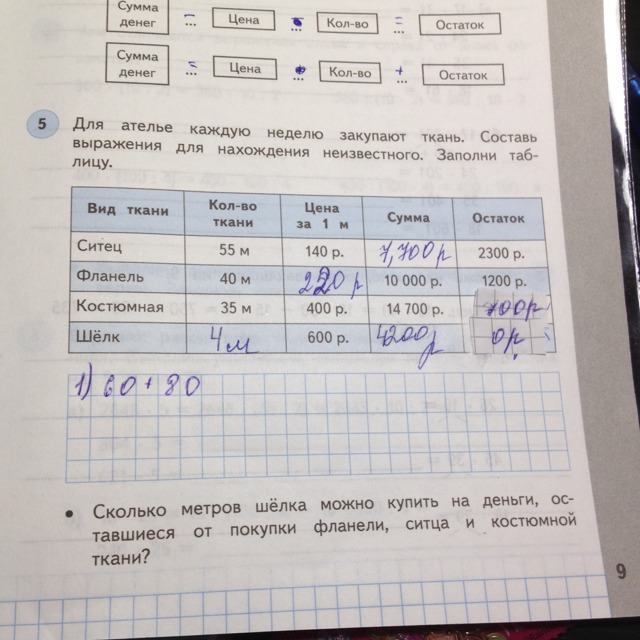 Сумма денег – ... Цена • ... Кол-во = ... Остаток
Сумма денег = ... Цена • ... Кол-во + ... Остаток
5 Для ателье каждую неделю закупают ткань. Составь
выражения для нахождения неизвестного. Заполни таб-
лицу.
Вид ткани Кол-во ткани Цена за 1 м Сумма Остаток
Ситец 55 м 140 р. 7,700 р 2300 р.
Фланель 40 м 220 р 10 000 р. 1200 р.
Костюмная 35 м 400 р. 14 700 р. 700р
Шёлк 4 м 600 р. 4200р 0р.
1) 60 + 80
• Сколько метров шёлка можно купить на деньги, ос-
тавшиеся от покупки фланели, ситца и костюмной
ткани?
9